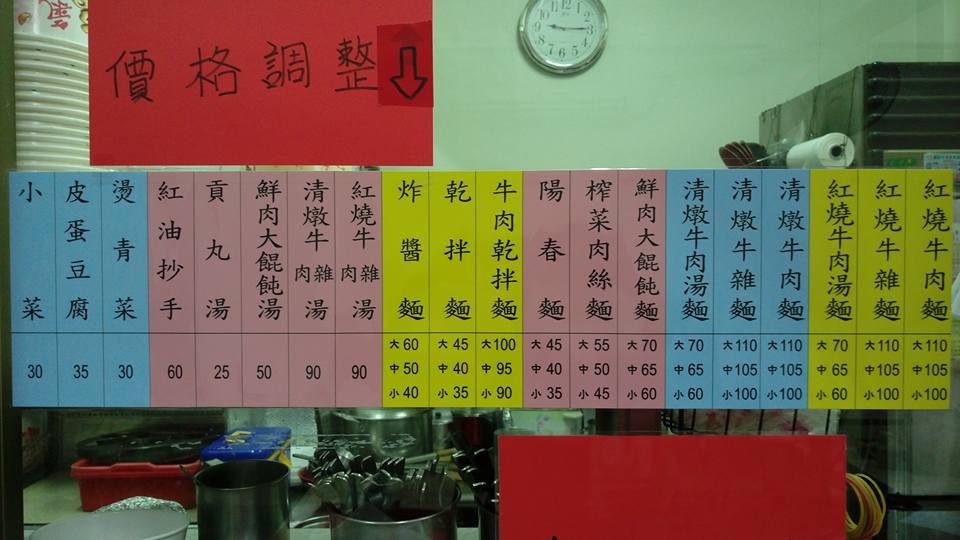 價格調整
紅燒牛肉麵
大110
中105
小100
紅燒牛雜麵
大110
中105
小100
紅燒牛肉湯麵
大70
中65
小60
清燉牛肉麵
大110
中105
小100
清燉牛雜麵
大110
中105
小100
清燉牛肉湯麵
大70
中65
小60
鮮肉大餛飩麵
大70
中65
小60
榨菜肉絲麵
大55
中50
小45
陽春麵
大45
中40
小35
牛肉乾拌麵
大100
中95
小90
乾拌麵
大45
中40
小35
炸醬麵
大60
中50
小40
紅燒牛雜肉湯
90
清燉牛雜肉湯
90
鮮肉大餛飩湯
50
貢丸湯
25
紅油抄手
60
燙青菜
30
皮蛋豆腐
35
小菜
30